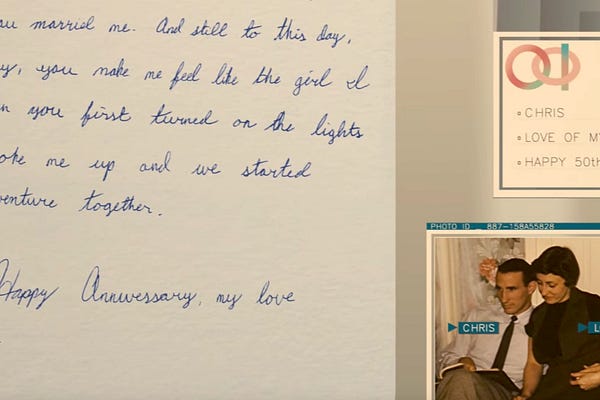 ou married me. And still to this day,
y, you make me feel like the girl I
n you first turned on the lights
oke me up and we started
enture together.
Happy Annivessary, my love
CHRIS
LOVE OF MY
HAPPY 50th
PHOTO ID _ 887-158A55828
CHRIS
L